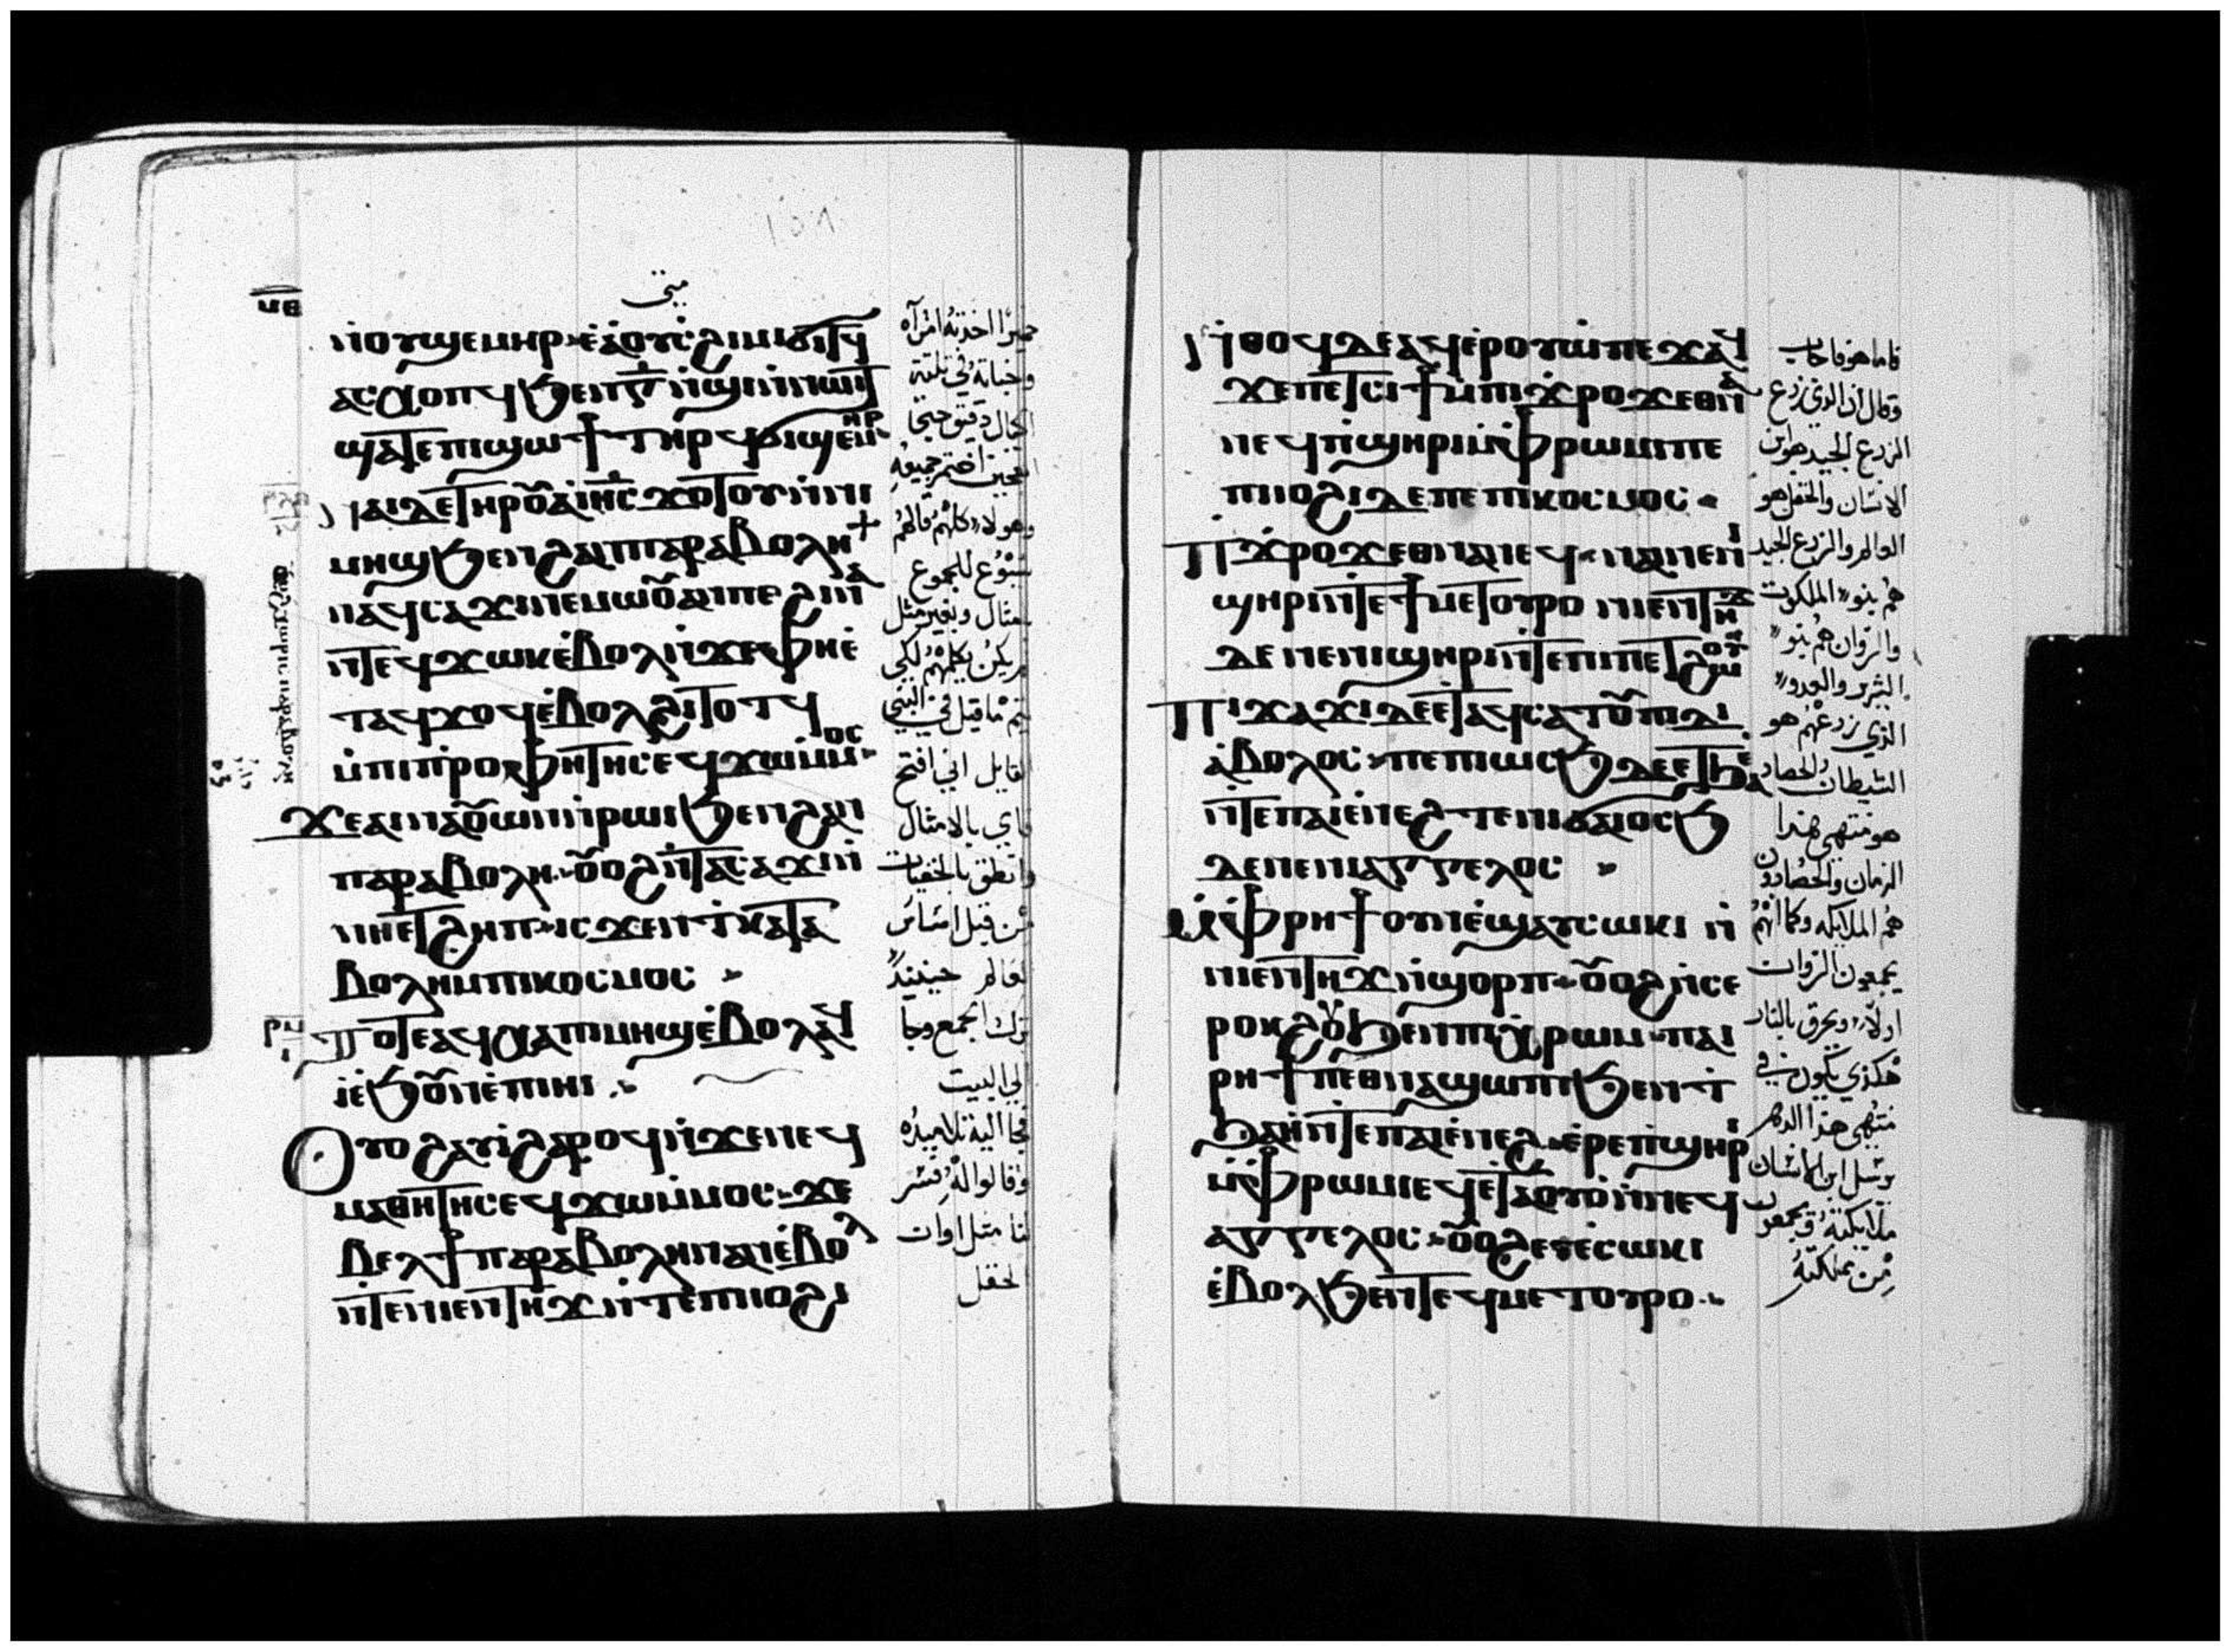 متى
ⲛ̀ⲟⲩϣⲉⲙⲏⲣ ⲉ̀ⲁⲟⲩⲥϩⲓⲙⲓ ϭⲓⲧϥ
ⲁⲥⲭⲟⲡϥ ϧⲉⲛ ⲅ̄ ⲛ̀ϣⲓ ⲛ̀ⲛⲱⲓⲧ
ϣⲁⲧⲉⲡⲓϣⲱϯ ⲧⲏⲣϥ ϭⲓϣⲉⲙⲏⲣ
ⲛⲁⲓ ⲇⲉ ⲧⲏⲣⲟⲩ ⲁ̀ ⲓⲏⲥ ϫⲟⲧⲟⲩ ⲛ̀ⲛⲓ
ⲙⲏϣ ϧⲉⲛ ϩⲁⲛⲡⲁⲣⲁⲃⲟⲗⲏ
ⲛⲁϥⲥⲁϫⲓ ⲛⲉⲙⲱⲟⲩ ⲁⲛ ⲡⲉ ϩⲓⲛⲁ
ⲛ̀ⲧⲉϥϫⲱⲕ ⲉ̀ⲃⲟⲗ ⲛ̀ϫⲉ ⲫⲏ ⲉ̀
ⲧⲁϥϫⲟϥ ⲉ̀ⲃⲟⲗϩⲓⲧⲟⲧϥ
ⲙ̀ⲡⲓⲡⲣⲟⲫⲏⲧⲏⲥ ⲉϥϫⲱⲙ̀ⲙⲟⲥ
ϫⲉ ⲁⲓⲛⲁⲟⲩⲱⲛ ⲛ̀ⲣⲱⲓ ϧⲉⲛ ϩⲁⲛ
ⲡⲁⲣⲁⲃⲟⲗⲏ ⲟⲩⲟϩ ⲛ̀ⲧⲁⲥⲁϫⲓ ⲛ̀
ⲛⲏⲉⲧϩⲏⲡ ⲓⲥϫⲉⲛ ϯⲕⲁⲧⲁ
ⲃⲟⲗⲏ ⲙ̀ⲡⲓⲕⲟⲥⲙⲟⲥ
ⲧⲟⲧⲉ ⲁϥⲭⲁ ⲡⲓⲙⲏϣ ⲉ̀ⲃⲟⲗ ⲁϥ
ⲓ̀ ⲉ̀ϧⲟⲩⲛ ⲉ̀ⲡⲓⲏⲓ
ⲟⲩⲟϩ ⲁⲩⲓ̀ ϩⲁⲣⲟϥ ⲛ̀ϫⲉ ⲛⲉϥ
ⲙⲁⲑⲏⲧⲏⲥ ⲉϥϫⲱⲙ̀ⲙⲟⲥ ϫⲉ
ⲃⲉⲗ ϯⲡⲁⲣⲁⲃⲟⲗⲏ ⲛⲁⲛ ⲉ̀ⲃⲟⲗ
ⲛ̀ⲧⲉ ⲛⲓⲉⲛⲧⲏϫ ⲛ̀ⲧⲉ ⲡⲓⲓⲟϩⲓ
خميرًا اخذته امرآه
وخباته في ثلثة
اكيال دقيق حتى
العجين اختمر جميعه
وهولاء كلهم قالهم
يسوع للجموع
بمثال وبغير مثل
لم يكن يكلمهم لكى
يتم ما قيل في النبي
القايل اني افتح
فاي بالامثال
وانطق بالخفيات
من قبل اساس
العالم حينيذ
ترك الجمع وجا
الى البيت
فجا اليه تلاميذه
وقالوا له فسر
لنا مثل زوان
الحقل
ⲛ̀ⲑⲟϥ ⲇⲉ ⲁϥⲉⲣⲟⲩⲱ̀ ⲡⲉϫⲁϥ
ϫⲉ ⲡⲉⲧⲥⲓϯ ⲙ̀ⲡⲓϫⲣⲟϫ ⲉⲑⲛⲁ
ⲛⲉϥ ⲡ̀ϣⲏⲣⲓ ⲙ̀ⲫⲣⲱⲙⲓ ⲡⲉ
ⲡⲓⲓⲟϩⲓ ⲇⲉ ⲡⲉ ⲡⲓⲕⲟⲥⲙⲟⲥ
ⲡⲓϫⲣⲟϫ ⲉⲑⲛⲁⲛⲉϥ ⲛⲁⲓ ⲛⲉ ⲛⲉⲛ
ϣⲏⲣⲓ ⲛ̀ⲧⲉ ϯⲙⲉⲧⲟⲩⲣⲟ ⲛⲓⲉⲛⲧⲏϫ
ⲇⲉ ⲛⲉ ⲛⲓϣⲏⲣⲓ ⲛ̀ⲧⲉ ⲡⲓⲡⲉⲧϩⲱⲟⲩ
ⲡⲓϫⲁϫⲓ ⲇⲉ ⲉⲧⲁϥⲥⲁⲧⲟⲩ ⲡⲓⲇⲓ
ⲁ̀ⲃⲟⲗⲟⲥ ⲡⲉ ⲡⲓⲱⲥϧ ⲇⲉ ⲉⲧϧⲁⲉ
ⲛ̀ⲧⲉ ⲡⲁⲓⲉ̀ⲛⲉϩ ⲧⲉ ⲛⲓϭⲁⲓⲟⲥϧ
ⲇⲉ ⲛⲉ ⲛⲓⲁⲅⲅⲉⲗⲟⲥ
ⲙ̀ⲫⲣⲏϯ ⲟⲩⲛ ⲉ̀ϣⲁⲩⲥⲱⲕⲓ ⲛ̀
ⲛⲓⲉⲛⲧⲏϫ ⲛ̀ϣⲟⲣⲡ ⲟⲩⲟϩ ⲛ̀ⲥⲉ
ⲣⲟⲕϩⲟⲩ ϧⲉⲛ ⲡⲓⲭⲣⲱⲙ ⲡⲁⲓ
ⲣⲏϯ ⲡⲉⲑⲛⲁϣⲱⲡⲓ ϧⲉⲛ ϯ
ϧⲁⲏ̀ ⲛ̀ⲧⲉ ⲡⲁⲓⲉ̀ⲛⲉϩ ⲉ̀ⲣⲉ ⲡ̀ϣⲏⲣⲓ
ⲙ̀ⲫⲣⲱⲙⲓ ⲉϥⲉ̀ⲧⲁⲟⲩⲟ̀ ⲛ̀ⲛⲉϥ
ⲁⲅⲅⲉⲗⲟⲥ ⲟⲩⲟϩ ⲉⲩⲉ̀ⲥⲱⲕⲓ
ⲉ̀ⲃⲟⲗ ϧⲉⲛ ⲧⲉϥⲙⲉⲧⲟⲩⲣⲟ
فاما هو فاجاب
وقال ان الذي زرع
الزرع الجيد هو ابن
الانسان والحقل هو
العالم والزرع الجيد
هم بنو الملكوت
والزوان هم بنو
الشرير والعدو
الذي زرعهم هو
الشيطان والحصاد
هو منتهى هذا
الزمان والحصادون
هم الملايكه وكما انهم
يجمعون الزوان
اولاً ويحرق بالنار
هكذي يكون في
منتهى هذا الدهر
يرسل ابن الانسان
ملايكته ويجمعون
من مملكته